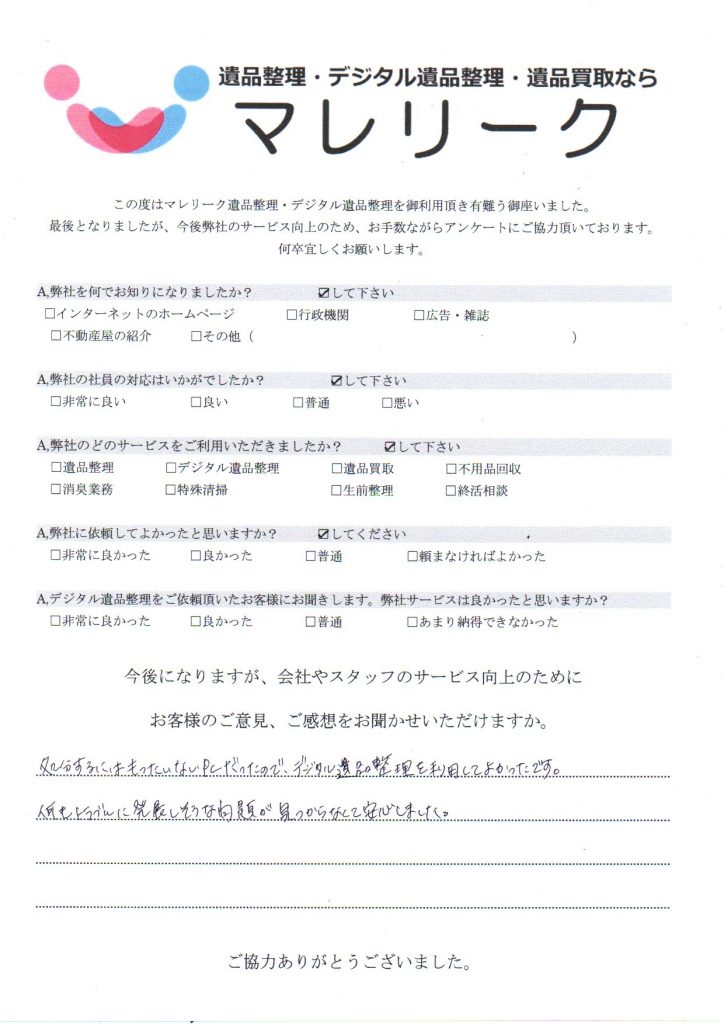 遺品整理・デジタル遺品整理・遺品買取なら
マレリーク
この度はマレリーク遺品整理・デジタル遺品整理を御利用頂き有難う御座いました。
最後となりましたが、今後弊社のサービス向上のため、お手数ながらアンケートにご協力頂いております。
何卒宜しくお願いします。
A,弊社を何でお知りになりましたか? ☑して下さい
□インターネットのホームページ □行政機関 □広告・雑誌
□不動産屋の紹介 □その他( )
A,弊社の社員の対応はいかがでしたか? ☑して下さい
□非常に良い □良い □普通 □悪い
A,弊社のどのサービスをご利用いただきましたか? ☑して下さい
□遺品整理 □デジタル遺品整理 □遺品買取 □不用品回収
□消臭業務 □特殊清掃 □生前整理 □終活相談
A,弊社に依頼してよかったと思いますか? ☑してください
□非常に良かった □良かった □普通 □頼まなければよかった
A,デジタル遺品整理をご依頼頂いたお客様にお聞きします。弊社サービスは良かったと思いますか?
□非常に良かった □良かった □普通 □あまり納得できなかった
今後になりますが、会社やスタッフのサービス向上のために
お客様のご意見、ご感想をお聞かせいただけますか。
処分するにはもったいないPCだったので、デジタル遺品整理を利用してよかったです。
何もトラブルに発展しそうな問題が見つからなくて安心しました。
ご協力ありがとうございました。